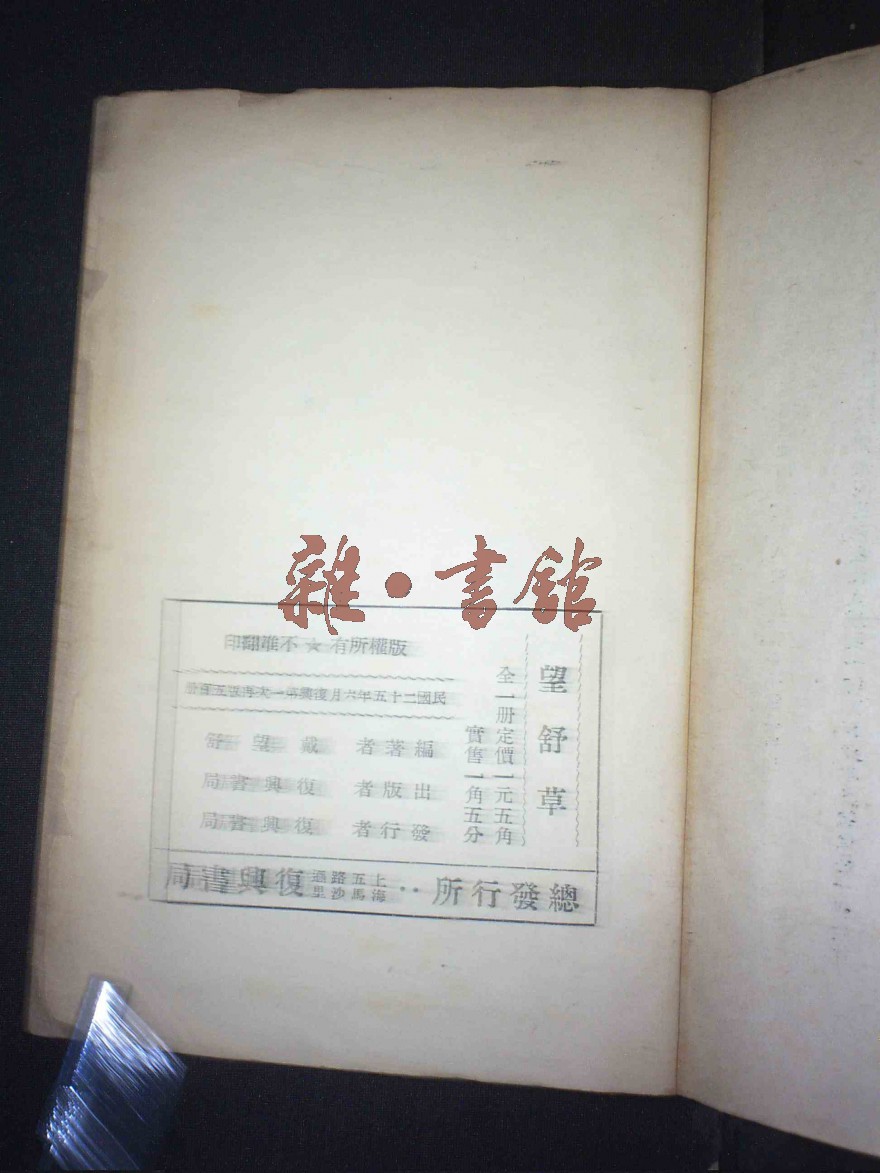 雜·書館
望舒草
全一册定價一元五角
實售一角五分
版權所有★不準翻印
民國二十五年六月復興第一次再版五百册
編著者 戴望舒
出版者 復興書局
發行者 復興書局
總發行所：上海五馬路沙遜里復興書局